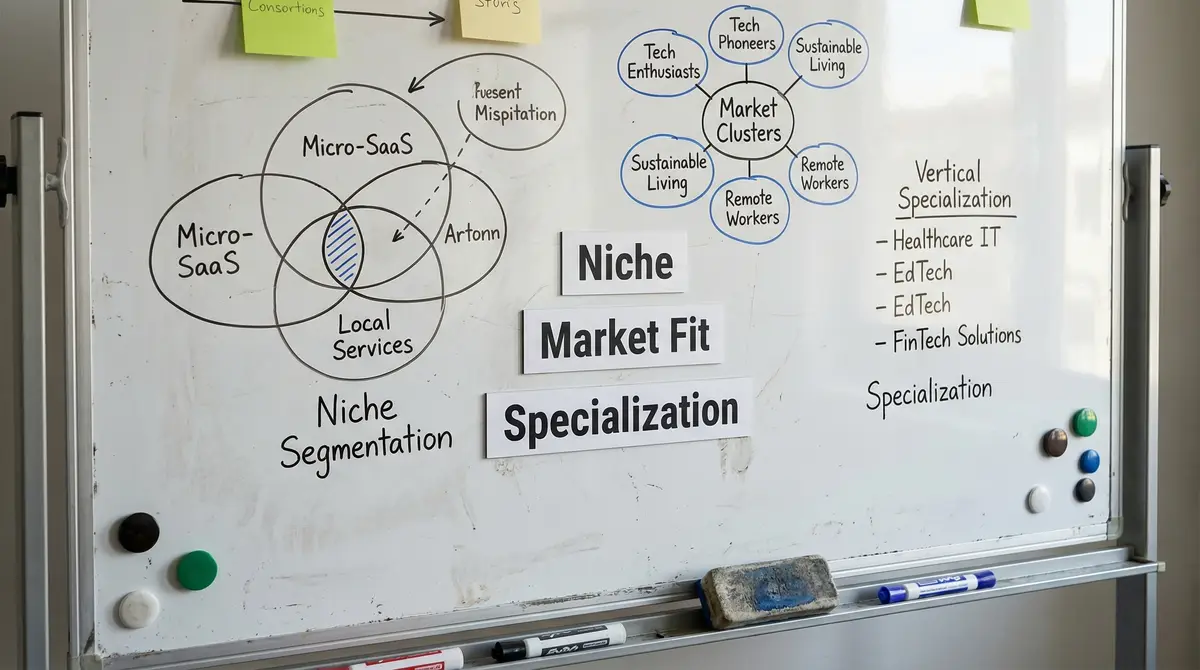 Consortions
Micro-SaaS
Micro-
SaaS
Artonn
Local
Services
Mispitation
Niche
Segmentation
Tech
Enthusiasts
Tech
Phoneers
Sustainable
Living
Market
Clusters
Sustainable
Living
Remote
Workers
Remote
Workers
Niche
Market Fit
Specialization
Vertical
Specialization
- Healthcare IT
- EdTech
- EdTech
- FinTech Solutions
Specialization